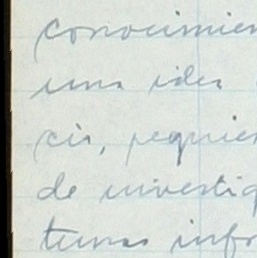 conocimien
una idea
cia, requier
de investig
tunas infor